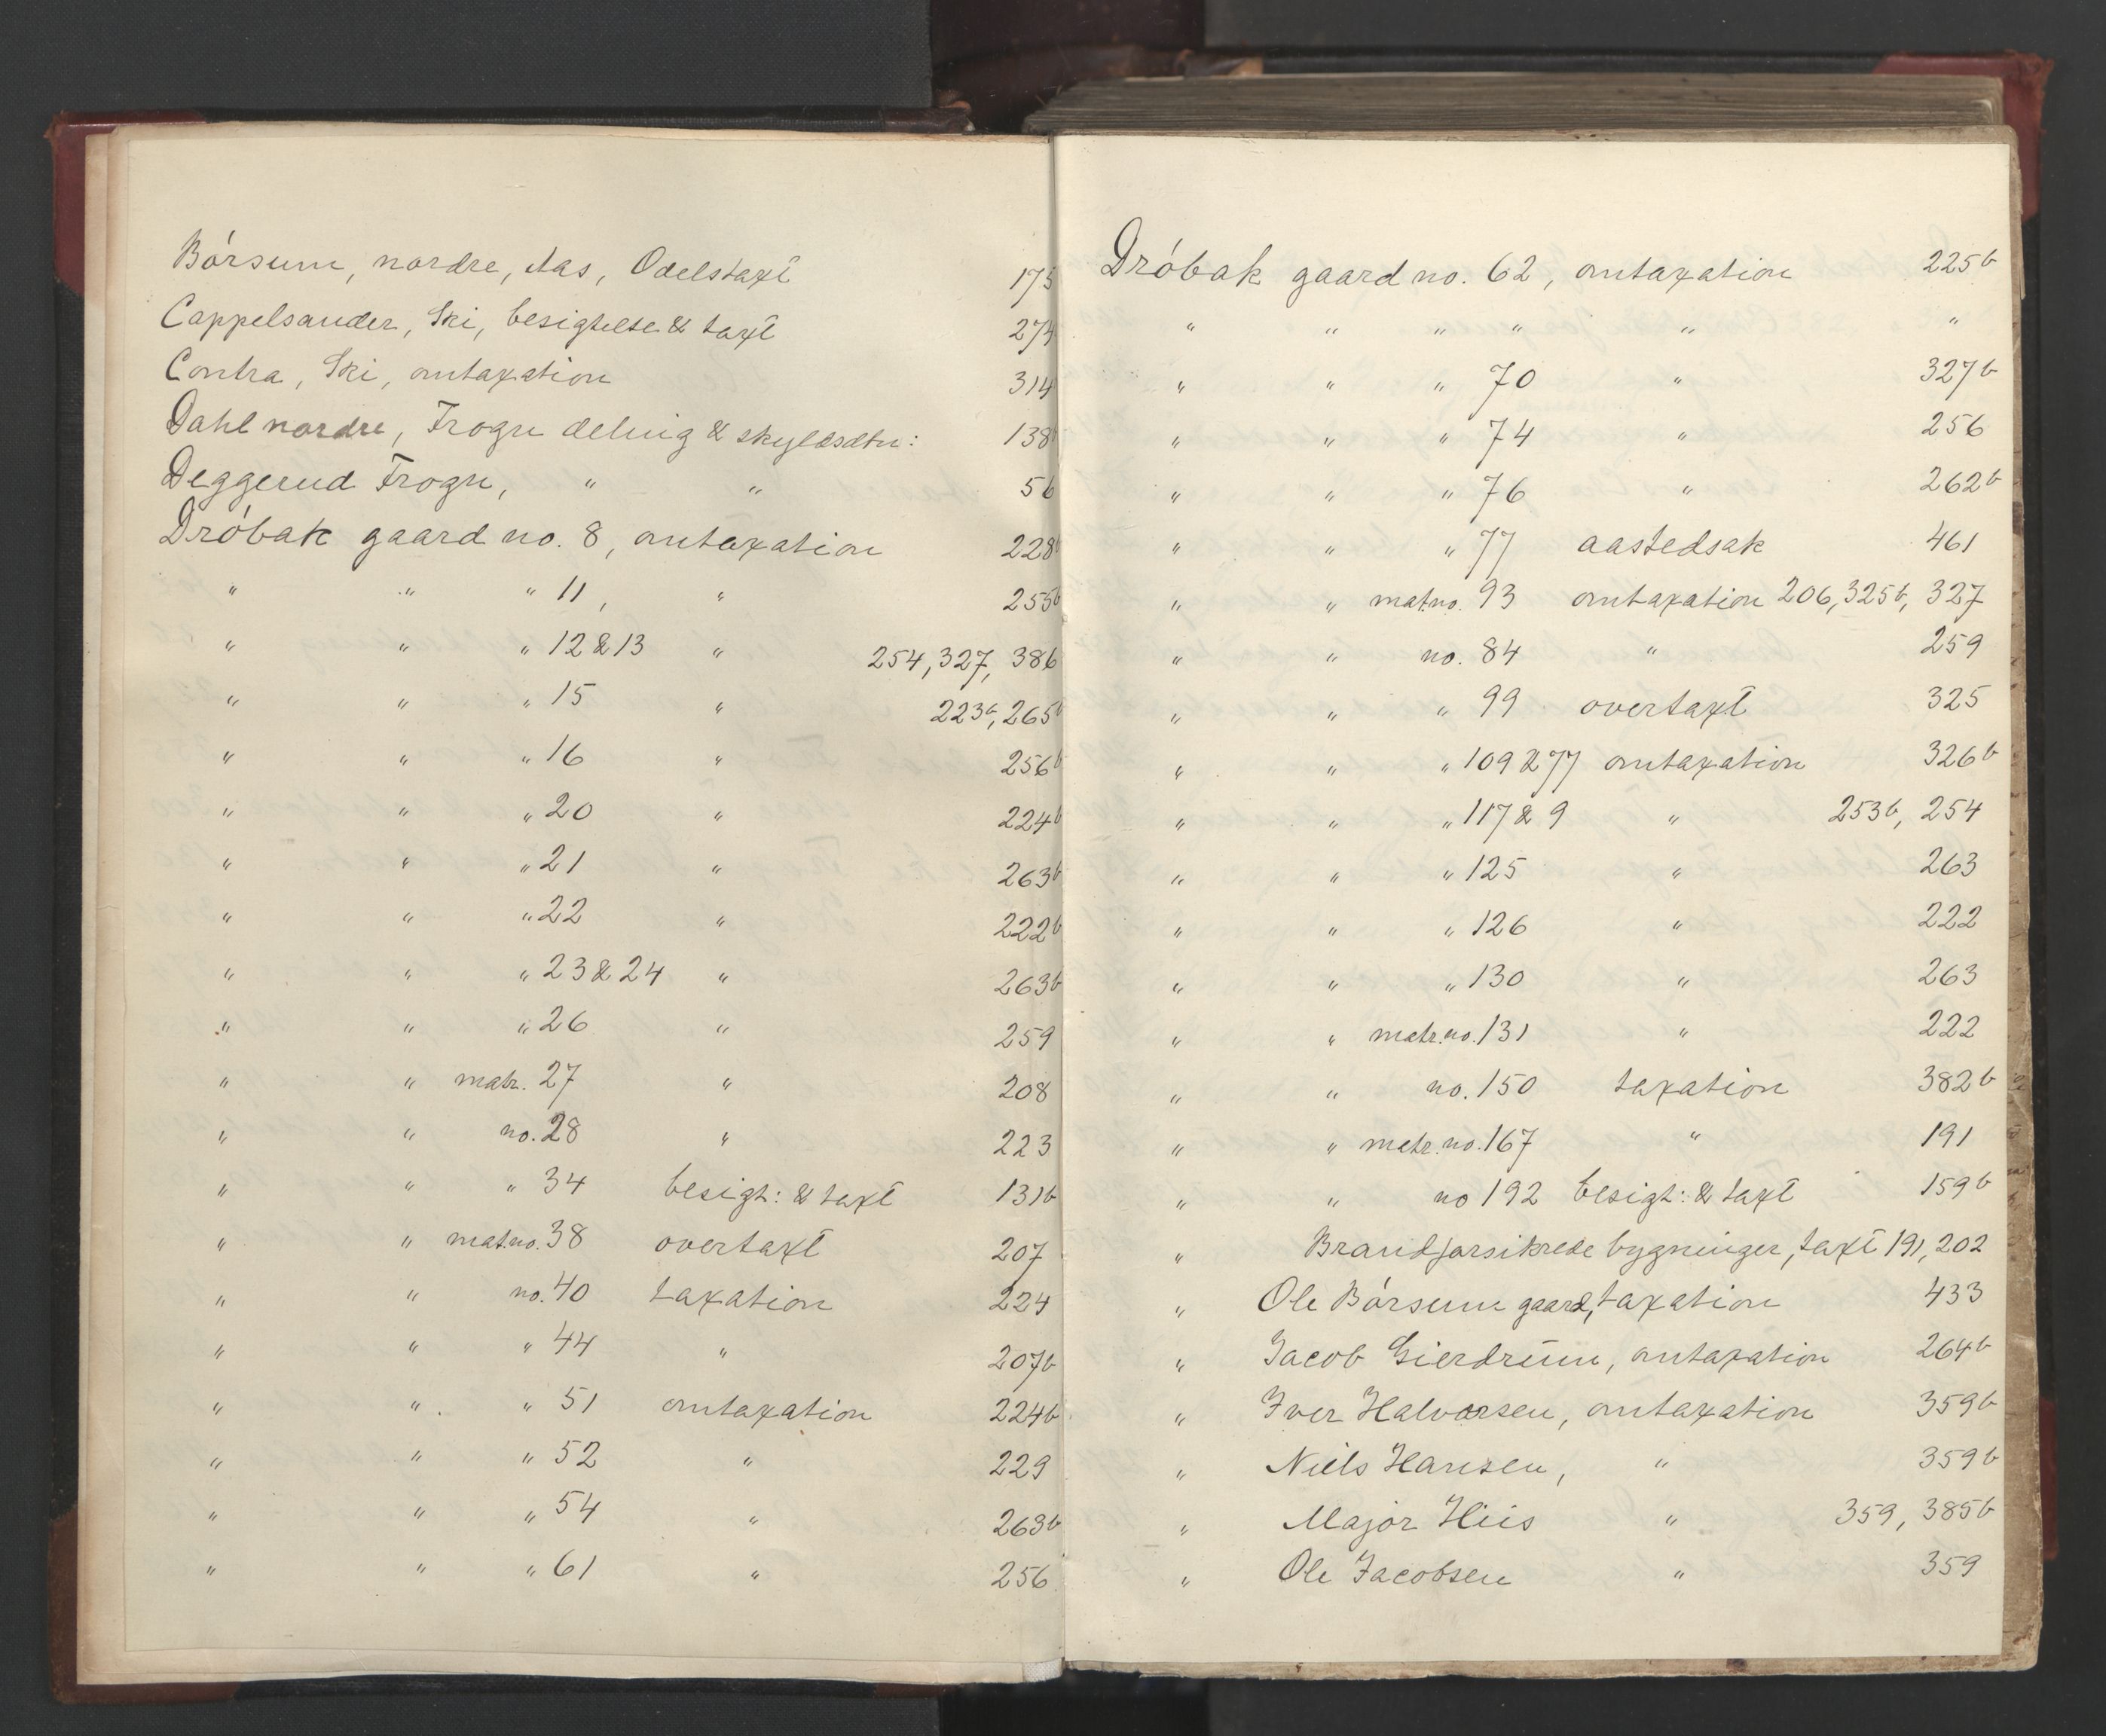 Bórsum, nordre, Aas, Odelstaxt 175
Cappelsander, Ski, besigtelse & taxt 274
Contra, Ski, omtaxation 314
Dahl nordre, Frogn deling & skyldsætn: 138b
Deggerud Frogn, " " 56
Dróbak gaard no. 8, omtaxation 228b
" " " 11, " 255b
" " " 12 & 13 " 254, 327, 386
" " " 15 " 223b, 265b
" " " 16 " 256b
" " " 20 " 224b
" " " 21 " 263b
" " " 22 " 222b
" " " 23 & 24 " 263b
" " " 26 " 259
" " matr. 27 " 208
" " no. 28 " 223
" " " 34 besigt: & taxt 131b
" " mat.no. 38 overtaxt 207
" " no. 40 taxation 224
" " " 44 " 207b
" " " 51 omtaxation 224b
" " " 52 " 229
" " " 54 " 263b
" " " 61 " 256
Dróbak gaard no. 62, omtaxation 225b
" " " " " "
" " " 70 " 327b
" " " 74 " 256
" " " 76 " 262b
" " " 77 aastedsak 461
" " mat.no. 93 omtaxation 206, 325b, 327
" " no. 84 " 259
" " " 99 overtaxt 325
" " " 109 & 77 omtaxation 326b
" " " 117 & 9 " 253b, 254
" " " 125 " 263
" " " 126 " 222
" " " 130 " 263
" " matr.no. 131 " 222
" " no. 150 taxation 382b
" " matr.no. 167 " 191
" " no 192 besigt: & taxt 159b
" Brandforsikrede bygninger, taxt 191, 202
" Ole Bórsum gaard, taxation 433
" Jacob Gierdrum, omtaxation 264b
" Iver Halvorsen, omtaxation 359b
" Niels Hansen, " 359b
" Major Hiis " 359, 385b
" Ole Jacobsen " 359